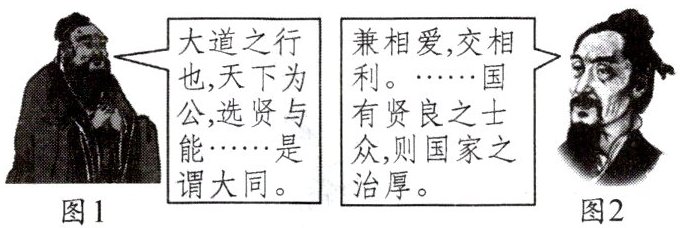 大道之行
也,天下为
公,选贤与
能……是
谓大同。
兼相爱,交相
利。……国
有贤良之士
众,则国家之
治厚。
图1
图2